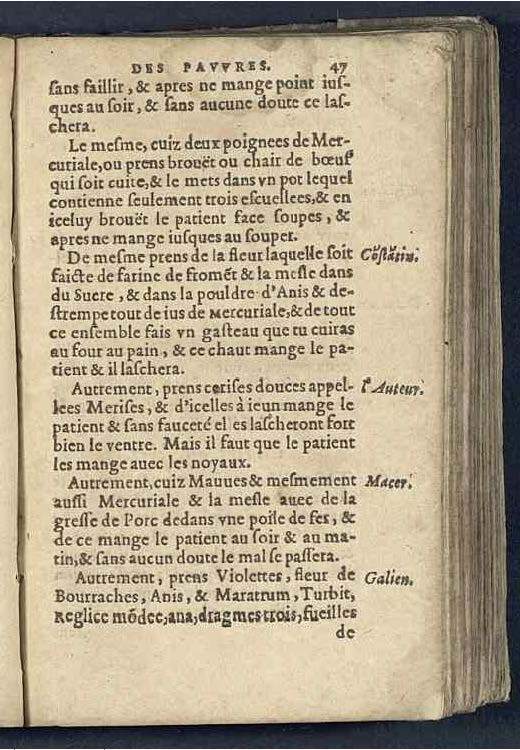 DES PAVVRES. 47
sans faillir, & apres ne mange point ius-
ques au soir, & sans aucune doute ce las-
chera.
Le mesme, cuiz deux poignees de Mer-
curiale, ou prens brouët ou chair de bœuf
qui soit cuite, & le mets dans vn pot lequel
contienne seulement trois escuellees, & en
iceluy brouët le patient face soupes, &
apres ne mange iusques au souper.
De mesme prens de la fleur laquelle soit Cõstãtin.
faicte de farine de fromẽt & la mesle dans
du Sucre, & dans la pouldre d'Anis & de-
strempe tout de ius de Mercuriale, & de tout
ce ensemble fais vn gasteau que tu cuiras
au four au pain, & ce chaut mange le pa-
tient & il laschera.
Autrement, prens cerises douces appel- l'Auteur.
lees Merises, & d'icelles à ieun mange le
patient & sans fauceté elles lascheront fort
bien le ventre. Mais il faut que le patient
les mange auec les noyaux.
Autrement, cuiz Mauues & mesmement Macer.
aussi Mercuriale & la mesle auec de la
gresse de Porc dedans vne poisle de fer, &
de ce mange le patient au soir & au ma-
tin, & sans aucun doute le mal se passera.
Autrement, prens Violettes, fleur de Galien.
Bourraches, Anis, & Maratrum, Turbit,
Reglice mõdee, ana, dragmes trois, fueilles
de